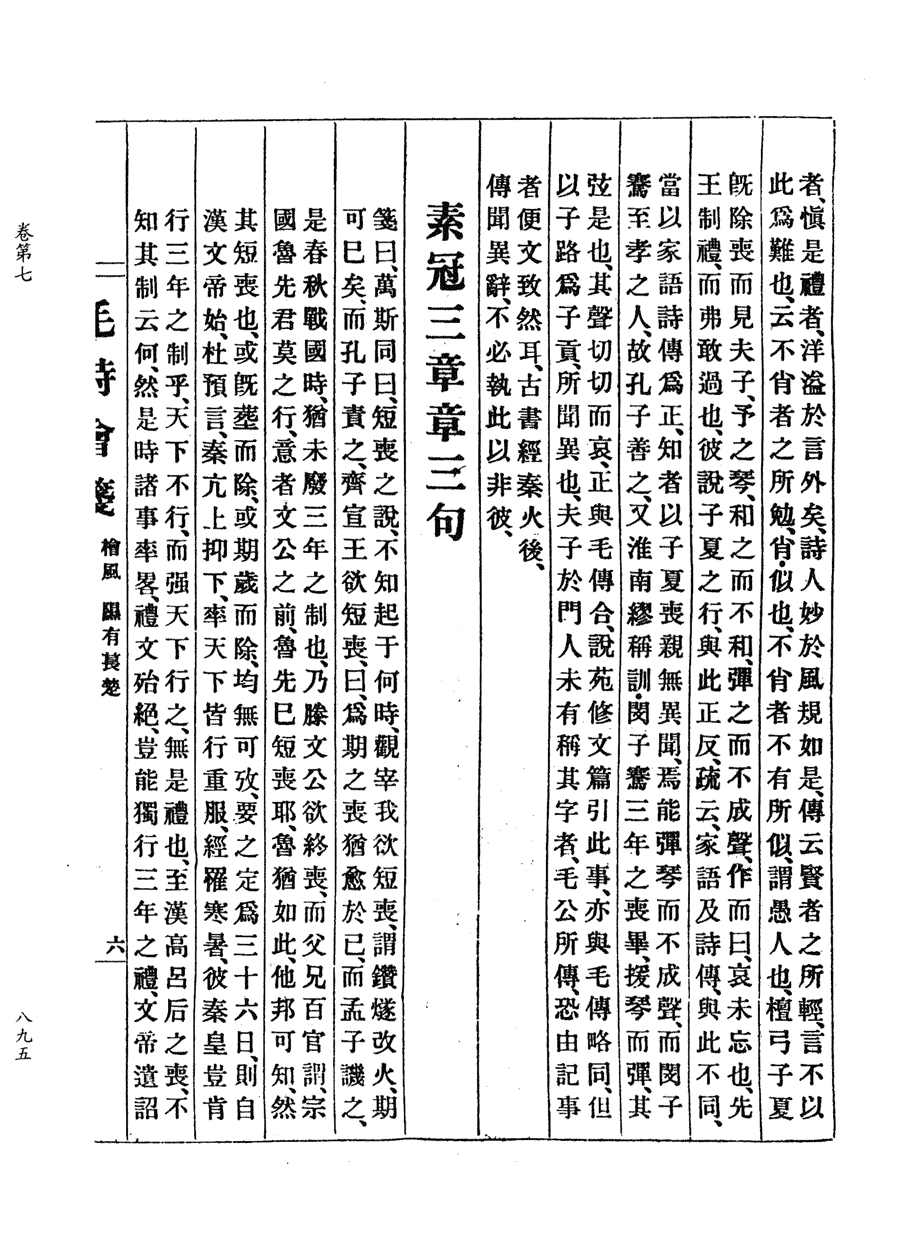 者、愼是禮者、洋溢於言外矣、詩人妙於風規如是、傳云賢者之所輕、言不以
此爲難也、云不肖者之所勉、肖似也、不肖者不有所似、謂愚人也、檀弓子夏
既除喪而見夫子、予之琴、和之而不和、彈之而不成聲、作而曰、哀未忘也、先
王制禮、而弗敢過也、彼說子夏之行、與此正反、疏云、家語及詩傳、與此不同、
當以家語詩傳爲正、知者以子夏喪親無異聞、焉能彈琴而不成聲、而閔子
騫至孝之人、故孔子善之、又淮南繆稱訓、閔子騫三年之喪畢、援琴而彈、其
弦是也、其聲切切而哀、正與毛傳合、說苑修文篇引此事、亦與毛傳略同、但
以子路爲子貢、所聞異也、夫子於門人未有稱其字者、毛公所傳、恐由記事
者便文致然耳、古書經秦火後、
傳聞異辭、不必執此以非彼、
素冠三章章三句
箋曰、萬斯同曰、短喪之說、不知起于何時、觀宰我欲短喪、謂鑽燧改火、期
可巳矣、而孔子責之、齊宣王欲短喪、曰、爲期之喪猶愈於已、而孟子譏之、
是春秋戰國時、猶未廢三年之制也、乃滕文公欲終喪、而父兄百官謂、宗
國魯先君莫之行、意者文公之前、魯先巳短喪耶、魯猶如此、他邦可知、然
其短喪也、或既葬而除、或期歲而除、均無可攷、要之定爲三十六日、則自
漢文帝始、杜預言、秦亢上抑下、率天下皆行重服、經罹寒暑、彼秦皇豈肯
行三年之制乎、天下不行、而强天下行之、無是禮也、至漢高呂后之喪、不
知其制云何、然是時諸事率畧、禮文殆絕、豈能獨行三年之禮、文帝遺詔
毛詩會箋 檜風 隰有萇楚 六
卷第七
八九五